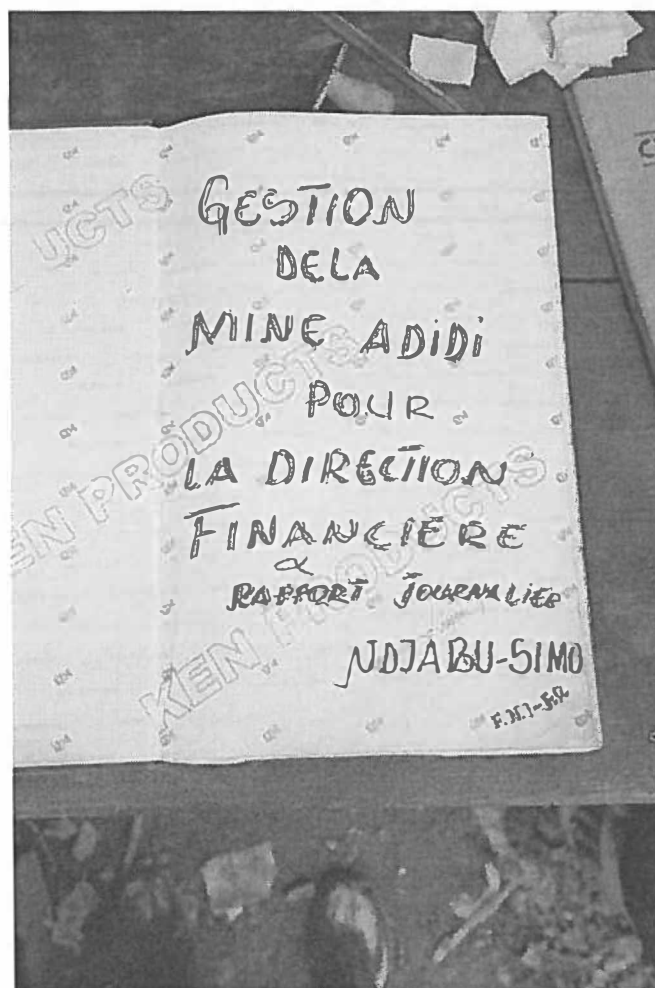 GESTION
DELA
MINE ADIDI
POUR
LA DIRECTION
FINANCIERE
&
RAPPORT JOURNALIER
NDJABU-SIMO
UCTS
KEN PRODUCTS
KEN PRODUCTS